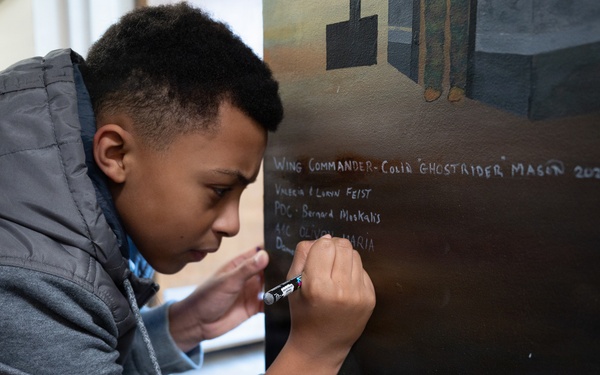 WING COMMANDER - COLIN "GHOSTRIDER" MASON 202
Valeria & Loren FEIST
PDC - Bernard Moskalis
A1C OLIVER MARIA